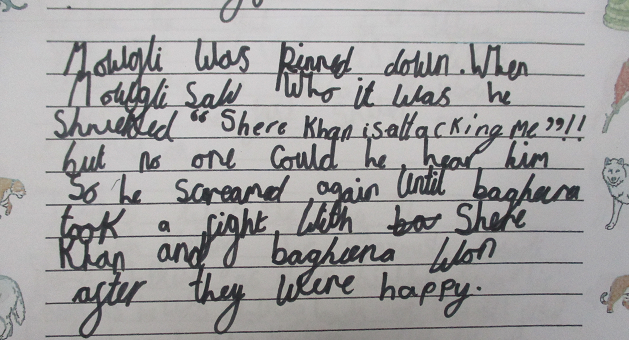 Mowgli was pinned down. When
Mowgli saw who it was he
Shrieked “ Shere Khan is attacking me ”!!
but no one could he hear him
So he screamed again until bagheera
took a fight with ba Shere
Khan and bagheera won
after they were happy.